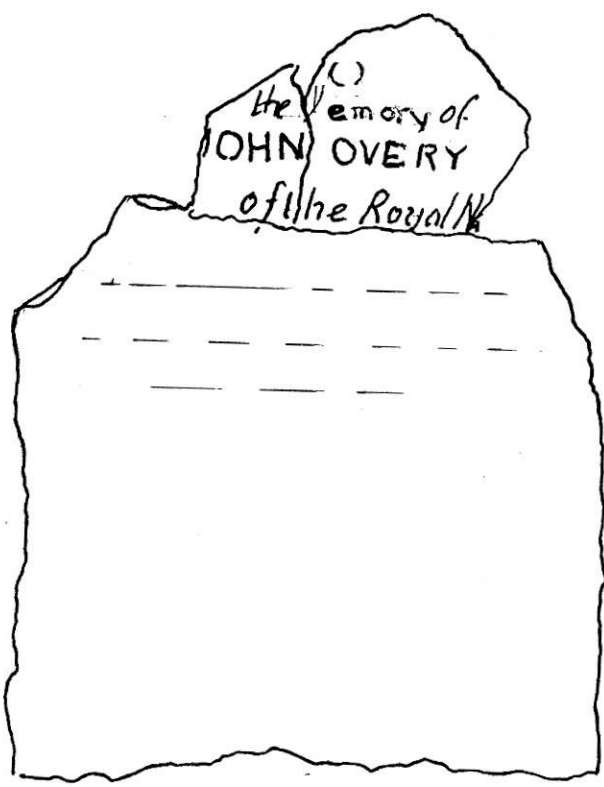 the Memory of
JOHN OVERY
of the Royal N